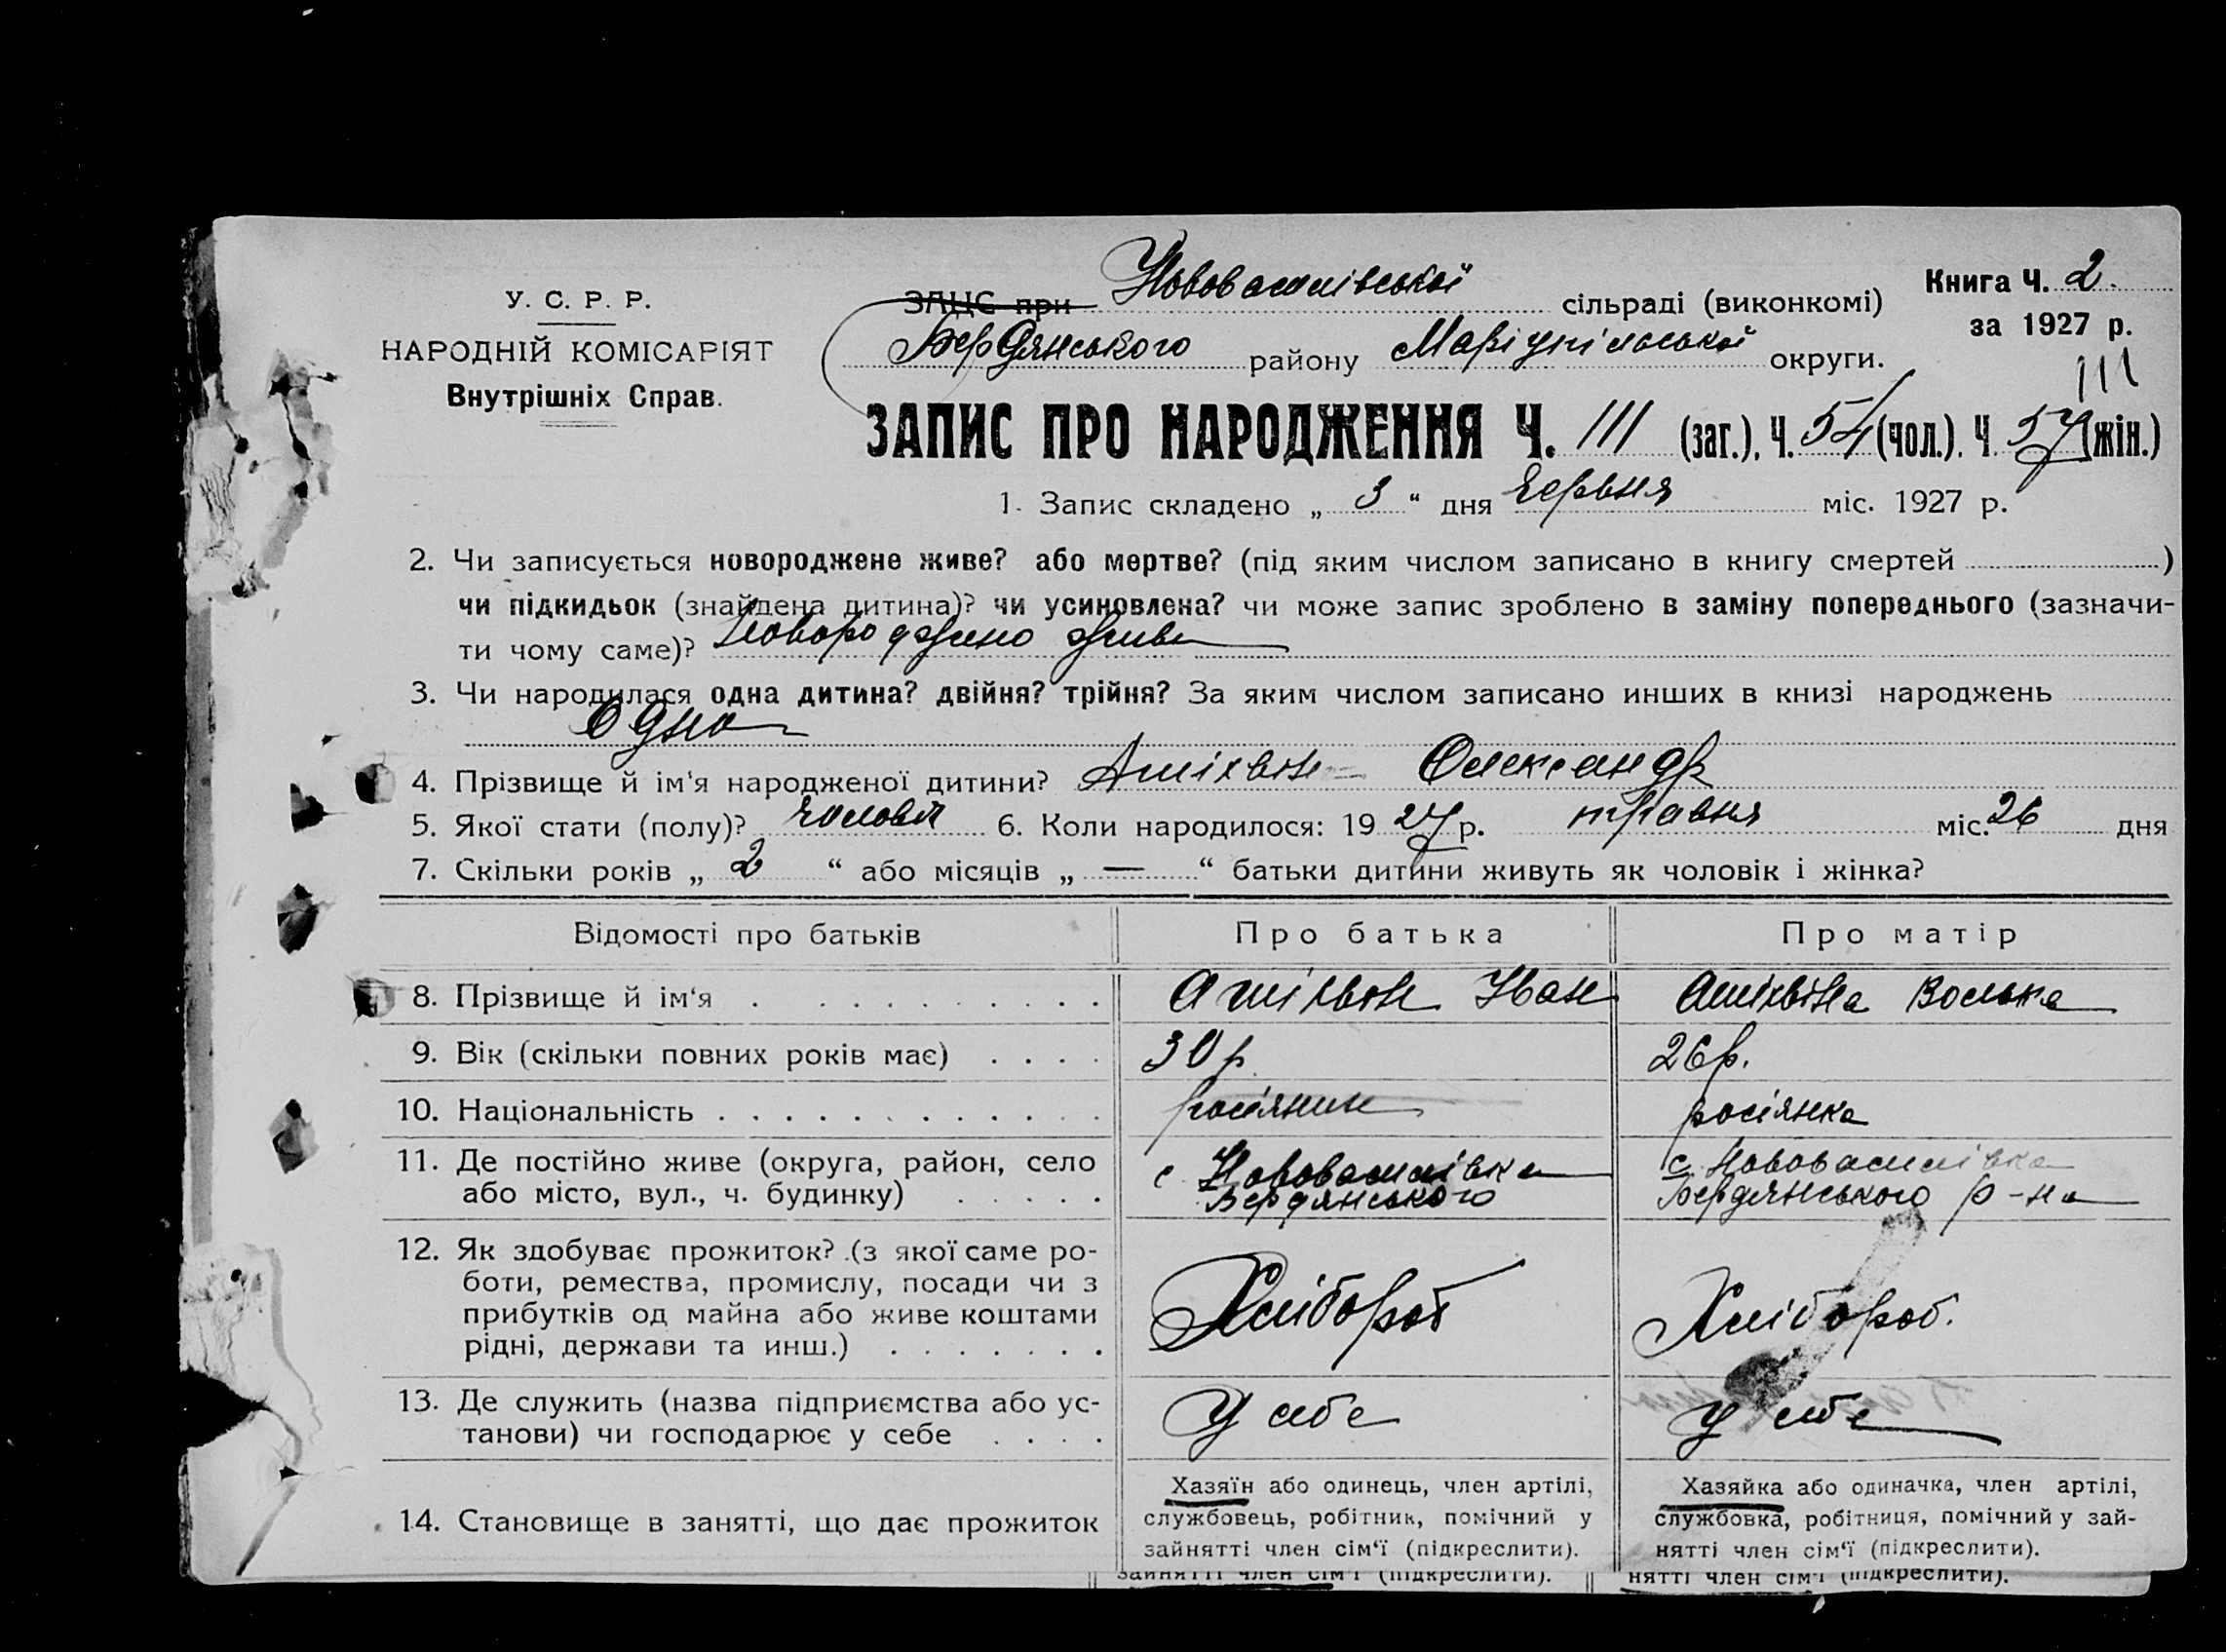 У. С. Р. Р.
НАРОДНІЙ КОМІСАРІЯТ
Внутрішніх Справ.
ЗАЦС при Нововасилівської сільраді (виконкомі)
Бердянського району Маріупільської округи.
Книга Ч. 2.
за 1927 р.
111
ЗАПИС ПРО НАРОДЖЕННЯ Ч. 111 (заг.), Ч. 54 (чол.). Ч 57 (жін.)
1. Запис складено „ 3 “ дня червня міс. 1927 р.
2. Чи записується новороджене живе? або мертве? (під яким числом записано в книгу смертей )
чи підкидьок (знайдена дитина)? чи усиновлена? чи може запис зроблено в заміну попереднього (зазначи-
ти чому саме)? новороджено живе
3. Чи народилася одна дитина? двійня? трійня? За яким числом записано инших в книзі народжень
Одна
4. Прізвище й ім‘я народженої дитини? Олександр
5. Якої стати (полу)? чолові 6. Коли народилося: 1927 р. травня міс. 26 дня
7. Скільки років „ 2 “ або місяців „ — “ батьки дитини живуть як чоловік і жінка?
Відомості про батьків Про батька Про матір
8. Прізвище й ім‘я Іван
9. Вік (скільки повних років має) 30 р 26 р.
10. Національність росіянин росіянка
11. Де постійно живе (округа, район, село с Нововасилівка с. Нововасилівка
або місто, вул., ч. будинку) Бердянського Бердянського р-на
12. Як здобуває прожиток? (з якої саме ро-
боти, ремества, промислу, посади чи з
прибутків од майна або живе коштами Хлібороб Хлібороб.
рідні, держави та инш.)
13. Де служить (назва підприємства або ус-
танови) чи господарює у себе У себе у себе
14. Становище в занятті, що дає прожиток
Хазяїн або одинець, член артілі,
службовець, робітник, помічний у
зайнятті член сім‘ї (підкреслити).
Хазяйка або одиначка, член артілі,
службовка, робітниця, помічний у зай-
нятті член сім‘ї (підкреслити).
зайнятті член сім‘ї (підкреслити). нятті член сім‘ї (підкреслити).